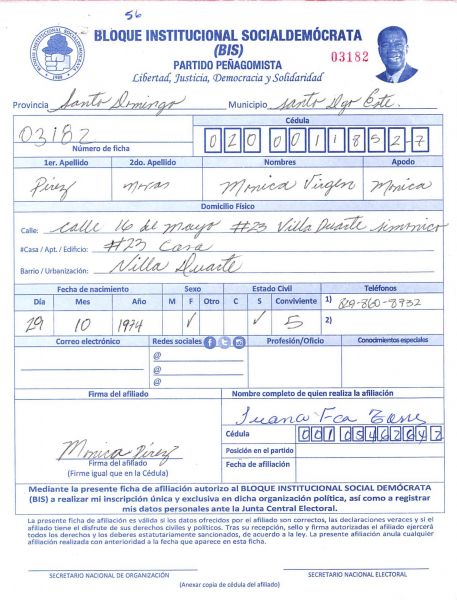 56
BLOQUE INSTITUCIONAL SOCIALDEMÓCRATA
(BIS)
PARTIDO PEÑAGOMISTA
03182
Libertad, Justicia, Democracia y Solidaridad
Provincia Santo Domingo Municipio Santo Dgo Este.
03182
Número de ficha
Cédula
020 0011852-7
1er. Apellido 2do. Apellido Nombres Apodo
Pérez Moras Monica Virgen Monica
Domicilio Físico
Calle: calle 16 de mayo #23 Villa Duarte simonico
#Casa / Apt. / Edificio: #23 Casa
Barrio / Urbanización: Villa Duarte
Fecha de nacimiento Sexo Estado Civil Teléfonos
Día Mes Año M F Otro C S Conviviente 1) 829-860-8932
29 10 1974 ✓ ✓ 5 2)
Correo electrónico Redes sociales Profesión/Oficio Conocimientos especiales
@
@
@
Firma del afiliado Nombre completo de quien realiza la afiliación
Juana Fca
Cédula
Monica Pérez
Firma del afiliado
(Firme igual que en la Cédula)
Posición en el partido
Fecha de afiliación
Mediante la presente ficha de afiliación autorizo al BLOQUE INSTITUCIONAL SOCIAL DEMÓCRATA
(BIS) a realizar mi inscripción única y exclusiva en dicha organización política, así como a registrar
mis datos personales ante la Junta Central Electoral.
La presente ficha de afiliación es válida si los datos ofrecidos por el afiliado son correctos, las declaraciones veraces y si el
afiliado tiene el disfrute de sus derechos civiles y políticos. Tras su recepción, sello y firma autorizadas el afiliado ejercerá
todos los derechos y los deberes estatutariamente sancionados, de acuerdo a la ley. La presente afiliación anula cualquier
afiliación realizada con anterioridad a la fecha que aparece en esta ficha.
SECRETARIO NACIONAL DE ORGANIZACIÓN SECRETARIO NACIONAL ELECTORAL
(Anexar copia de cédula del afiliado)